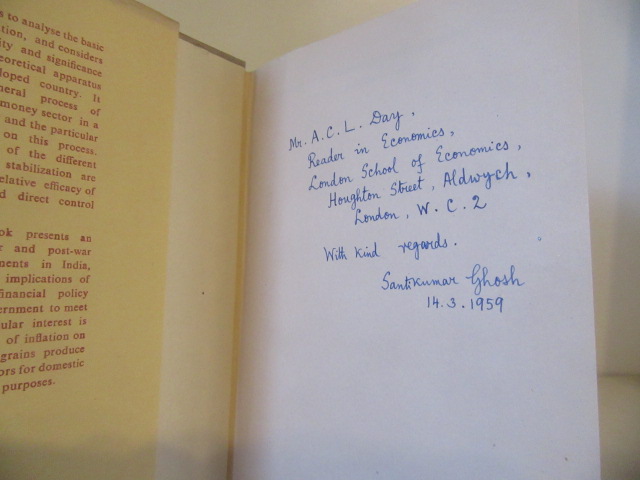 s to analyse the basic
tion, and considers
ity and significance
eoretical apparatus
loped country. It
neral process of
money sector in a
and the particular
on this process.
of the different
stabilization are
elative efficacy of
d direct control
ok presents an
r and post-war
ments in India,
implications of
financial policy
ernment to meet
cular interest is
of inflation on
grains produce
ors for domestic
purposes.
Mr. A. C. L. Day,
Reader in Economics,
London School of Economics,
Houghton Street, Aldwych,
London, W. C. 2
With kind regards.
Santikumar Ghosh
14.3.1959